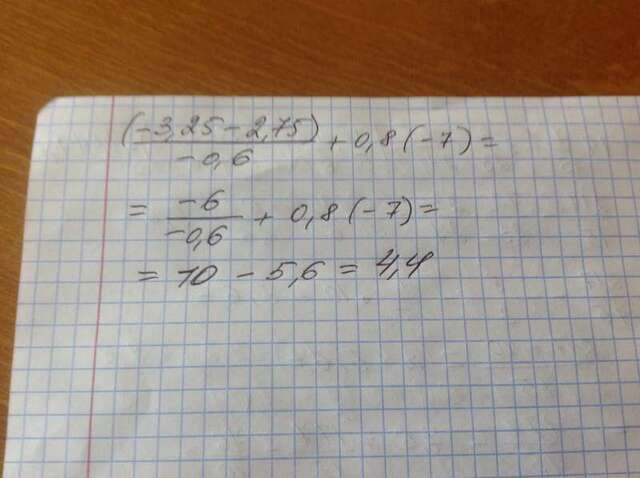 (-3,25-2,75)/-0,6 + 0,8(-7) =
= -6/-0,6 + 0,8(-7) =
= 10 - 5,6 = 4,4